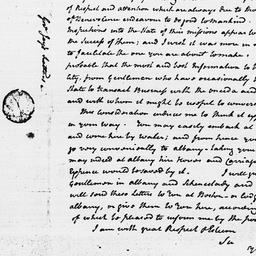 of Respect and attention which are always due to tho
of Benevolence endeavour to do good to mankind.
Inspections into the State of this missions appear to
the Success of them; and I wish it was more in
to facilitate the one you are about to make. I
probable that the most and best Information to b
City, from Gentlemen who have occasionally b
State to transact Business with the oneida and
and with whom it might be useful to convers
This consideration induces me to think it ex
in your way. You may easily embark at
and come hire by water; and from hence you
go very conveniently to albany - taking your
may indeed at albany hire Horses and Carriage
Expence would be saved by it. I will give
Gentlemen in albany and Schenectady and
will send these Letters to you at Boston - or lodge
albany, or give them to you here, according
of which be pleased to inform me by the post
I am with great Respect & Esteem